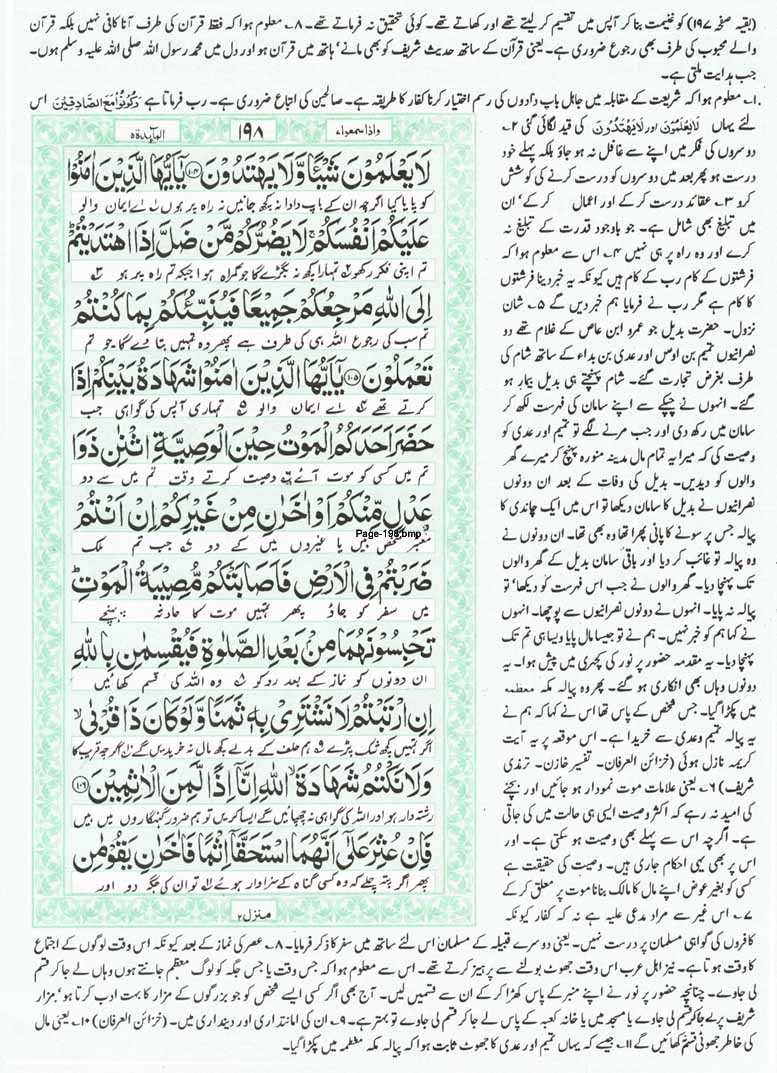 (بقیہ صفحہ ۱۹۷) کو غنیمت بنا کر آپس میں تقسیم کر لیتے تھے اور کھاتے تھے۔ کوئی تحقیق نہ فرماتے تھے۔ ۸۔ معلوم ہوا کہ فقط قرآن کی طرف آنا کافی نہیں بلکہ قرآن
والے محبوب کی طرف بھی رجوع ضروری ہے۔ یعنی قرآن کے ساتھ حدیث شریف کو بھی مانے' ہاتھ میں قرآن ہو اور دل میں محمد رسول اللہ صلی اللہ علیہ وسلم ہوں۔
جب ہدایت ملتی ہے۔
۱۔ معلوم ہوا کہ شریعت کے مقابلہ میں جاہل باپ دادوں کی رسم اختیار کرنا کفار کا طریقہ ہے۔ صالحین کی اتباع ضروری ہے۔ رب فرماتا ہے وَكُوْنُوْا مَعَ الصَّادِقِيْنَ اس
لئے یہاں لَا يَعْلَمُوْنَ اور لَا يَهْتَدُوْنَ کی قید لگائی گئی ۲۔
دوسروں کی فکر میں اپنے سے غافل نہ ہو جاؤ بلکہ پہلے خود
درست ہو پھر بعد میں دوسروں کو درست کرنے کی کوشش
کرو ۳۔ عقائد درست کر کے اور اعمال کر کے' ان
میں تبلیغ بھی شامل ہے۔ جو باوجود قدرت کے تبلیغ نہ
کرے اور وہ راہ پر ہی نہیں ۴۔ اس سے معلوم ہوا کہ
فرشتوں کے کام رب کے کام ہیں کیونکہ یہ خبر دینا فرشتوں
کا کام ہے مگر رب نے فرمایا ہم خبر دیں گے ۵۔ شان
نزول۔ حضرت بدیل جو عمرو ابن عاص کے غلام تھے دو
نصرانیوں تمیم بن اوس اور عدی بن بداء کے ساتھ شام کی
طرف بغرض تجارت گئے۔ شام پہنچتے ہی بدیل بیمار ہو
گئے۔ انہوں نے چپکے سے اپنے سامان کی فہرست لکھ کر
سامان میں رکھ دی اور جب مرنے لگے تو تمیم اور عدی کو
وصیت کی کہ میرا یہ تمام مال مدینہ منورہ پہنچ کر میرے گھر
والوں کو دیدیں۔ بدیل کی وفات کے بعد ان دونوں
نصرانیوں نے بدیل کا سامان دیکھا تو اس میں ایک چاندی کا
پیالہ جس پر سونے کا پانی پھرا تھا وہ بھی تھا۔ ان دونوں نے
وہ پیالہ تو غائب کر دیا اور باقی سامان بدیل کے گھر والوں
تک پہنچا دیا۔ گھر والوں نے جب اس فہرست کو دیکھا' تو
پیالہ نہ پایا۔ انہوں نے دونوں نصرانیوں سے پوچھا۔ انہوں
نے کہا ہم کو خبر نہیں۔ ہم نے تو جیسا مال پایا ویسا ہی تم تک
پہنچا دیا۔ یہ مقدمہ حضور پر نور کی کچہری میں پیش ہوا۔ یہ
دونوں وہاں بھی انکاری ہو گئے۔ پھر وہ پیالہ مکہ معظمہ
میں پکڑا گیا۔ جس شخص کے پاس تھا اس نے کہا کہ ہم نے
یہ پیالہ تمیم و عدی سے خریدا ہے۔ اس موقعہ پر یہ آیت
کریمہ نازل ہوئی (خزائن العرفان۔ تفسیر خازن۔ ترمذی
شریف) ۶۔ یعنی علامات موت نمودار ہو جائیں اور بچنے
کی امید نہ رہے کہ اکثر وصیت ایسی ہی حالت میں کی جاتی
ہے۔ اگرچہ اس سے پہلے بھی وصیت ہو سکتی ہے۔ اور
اس پر بھی یہی احکام جاری ہیں۔ وصیت کی حقیقت ہے
کسی کو بغیر عوض اپنے مال کا مالک بنانا موت پر معلق کر کے
۷۔ اس غیر سے مراد مدعی علیہ ہے نہ کہ کفار کیونکہ
واذا سمعوا، ۱۹۸ المآئدۃ ۵
لَا يَعْلَمُوْنَ شَيْئًا وَّلَا يَهْتَدُوْنَ ۝۱۰۴ يٰۤاَيُّهَا الَّذِيْنَ اٰمَنُوْا
کو پایا کیا اگرچہ ان کے باپ دادا نہ کچھ جانیں نہ راہ پر ہوں اے ایمان والو
عَلَيْكُمْ اَنْفُسَكُمْ لَا يَضُرُّكُمْ مَّنْ ضَلَّ اِذَا اهْتَدَيْتُمْ
تم اپنی فکر رکھو تمہارا کچھ نہ بگڑے گا جو گمراہ ہوا جبکہ تم راہ پر ہو
اِلَى اللّٰهِ مَرْجِعُكُمْ جَمِيْعًا فَيُنَبِّئُكُمْ بِمَا كُنْتُمْ
تم سب کی رجوع اللہ ہی کی طرف ہے پھر وہ تمہیں بتا دے گا جو تم
تَعْمَلُوْنَ ۝۱۰۵ يٰۤاَيُّهَا الَّذِيْنَ اٰمَنُوْا شَهَادَةُ بَيْنِكُمْ اِذَا
کرتے تھے اے ایمان والو تمہاری آپس کی گواہی جب
حَضَرَ اَحَدَكُمُ الْمَوْتُ حِيْنَ الْوَصِيَّةِ اثْنٰنِ ذَوَا
تم میں کسی کو موت آئے وصیت کرتے وقت تم میں سے دو
عَدْلٍ مِّنْكُمْ اَوْ اٰخَرٰنِ مِنْ غَيْرِكُمْ اِنْ اَنْتُمْ
Page-198.bmp
معتبر شخص ہیں یا غیروں میں کے دو جب تم ملک
ضَرَبْتُمْ فِي الْاَرْضِ فَاَصَابَتْكُمْ مُّصِيْبَةُ الْمَوْتِ
میں سفر کو جاؤ پھر تمہیں موت کا حادثہ پہنچے
تَحْبِسُوْنَهُمَا مِنْ بَعْدِ الصَّلٰوةِ فَيُقْسِمٰنِ بِاللّٰهِ
ان دونوں کو نماز کے بعد روکو وہ اللہ کی قسم کھائیں
اِنِ ارْتَبْتُمْ لَا نَشْتَرِيْ بِهٖ ثَمَنًا وَّلَوْ كَانَ ذَا قُرْبٰى
اگر تمہیں کچھ شک پڑے ہم حلف کے بدلے کچھ مال نہ خریدیں گے اگرچہ قریب کا
وَلَا نَكْتُمُ شَهَادَةَ اللّٰهِ اِنَّاۤ اِذًا لَّمِنَ الْاٰثِمِيْنَ ۝۱۰۶
رشتہ دار ہو اور اللہ کی گواہی نہ چھپائیں گے ایسا کریں تو ہم ضرور گنہگاروں میں ہیں
فَاِنْ عُثِرَ عَلٰۤى اَنَّهُمَا اسْتَحَقَّاۤ اِثْمًا فَاٰخَرٰنِ يَقُوْمٰنِ
پھر اگر پتہ چلے کہ وہ کسی گناہ کے سزاوار ہوئے تو ان کی جگہ دو اور
منزل ۲
کافروں کی گواہی مسلمان پر درست نہیں۔ یعنی دوسرے قبیلہ کے مسلمان اس لئے ساتھ میں سفر کا ذکر فرمایا۔ ۸۔ عصر کی نماز کے بعد کیونکہ اس وقت لوگوں کے اجتماع
کا وقت ہوتا ہے۔ نیز اہل عرب اس وقت جھوٹ بولنے سے پرہیز کرتے تھے۔ اس سے معلوم ہوا کہ جس وقت یا جس جگہ کو لوگ معظم جانتے ہوں وہاں لے جا کر قسم
لی جاوے۔ چنانچہ حضور پر نور نے اپنے منبر کے پاس کھڑا کر کے ان سے قسمیں لیں۔ آج بھی اگر کسی ایسے شخص کو جو بزرگوں کے مزار کا بہت ادب کرتا ہو' مزار
شریف پر لے جا کر قسم لی جاوے یا مسجد میں یا خانہ کعبہ کے پاس لے جا کر قسم لی جاوے تو بہتر ہے۔ ۹۔ ان کی امانتداری اور دینداری میں۔ (خزائن العرفان) ۱۰۔ یعنی مال
کی خاطر جھوٹی قسم کھائیں گے ۱۱۔ جیسے کہ یہاں تمیم اور عدی کا جھوٹ ثابت ہوا کہ پیالہ مکہ معظمہ میں پکڑا گیا۔